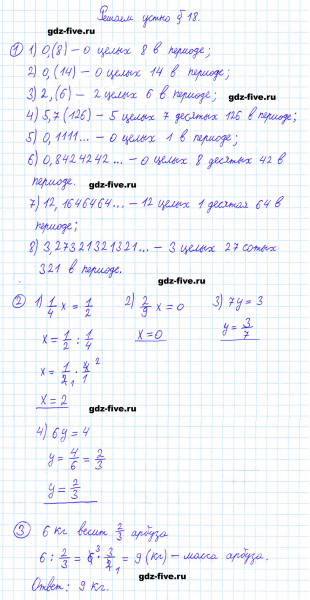 Решаем устно § 18.
gdz-five.ru
① 1) 0,(8) – 0 целых 8 в периоде;
2) 0,(14) – 0 целых 14 в периоде;
3) 2,(6) – 2 целых 6 в периоде;
gdz-five.ru
4) 5,7(126) – 5 целых 7 десятых 126 в периоде;
5) 0,1111... – 0 целых 1 в периоде;
6) 0,8424242... – 0 целых 8 десятых 42 в
периоде.
gdz-five.ru
7) 12,1646464... – 12 целых 1 десятая 64 в
периоде;
gdz-five.ru
8) 3,27321321321... – 3 целых 27 сотых
321 в периоде.
gdz-five.ru
② 1) 1/4 x = 1/2
x = 1/2 : 1/4
x = 1/2 · 4/1
x = 2
2) 2/9 x = 0
x = 0
3) 7y = 3
y = 3/7
gdz-five.ru
gdz-five.ru
4) 6y = 4
y = 4/6 = 2/3
y = 2/3
gdz-five.ru
③ 6 кг весит 2/3 арбуза
6 : 2/3 = 6 · 3/2 = 9 (кг) – масса арбуза.
gdz-five.ru
Ответ: 9 кг.